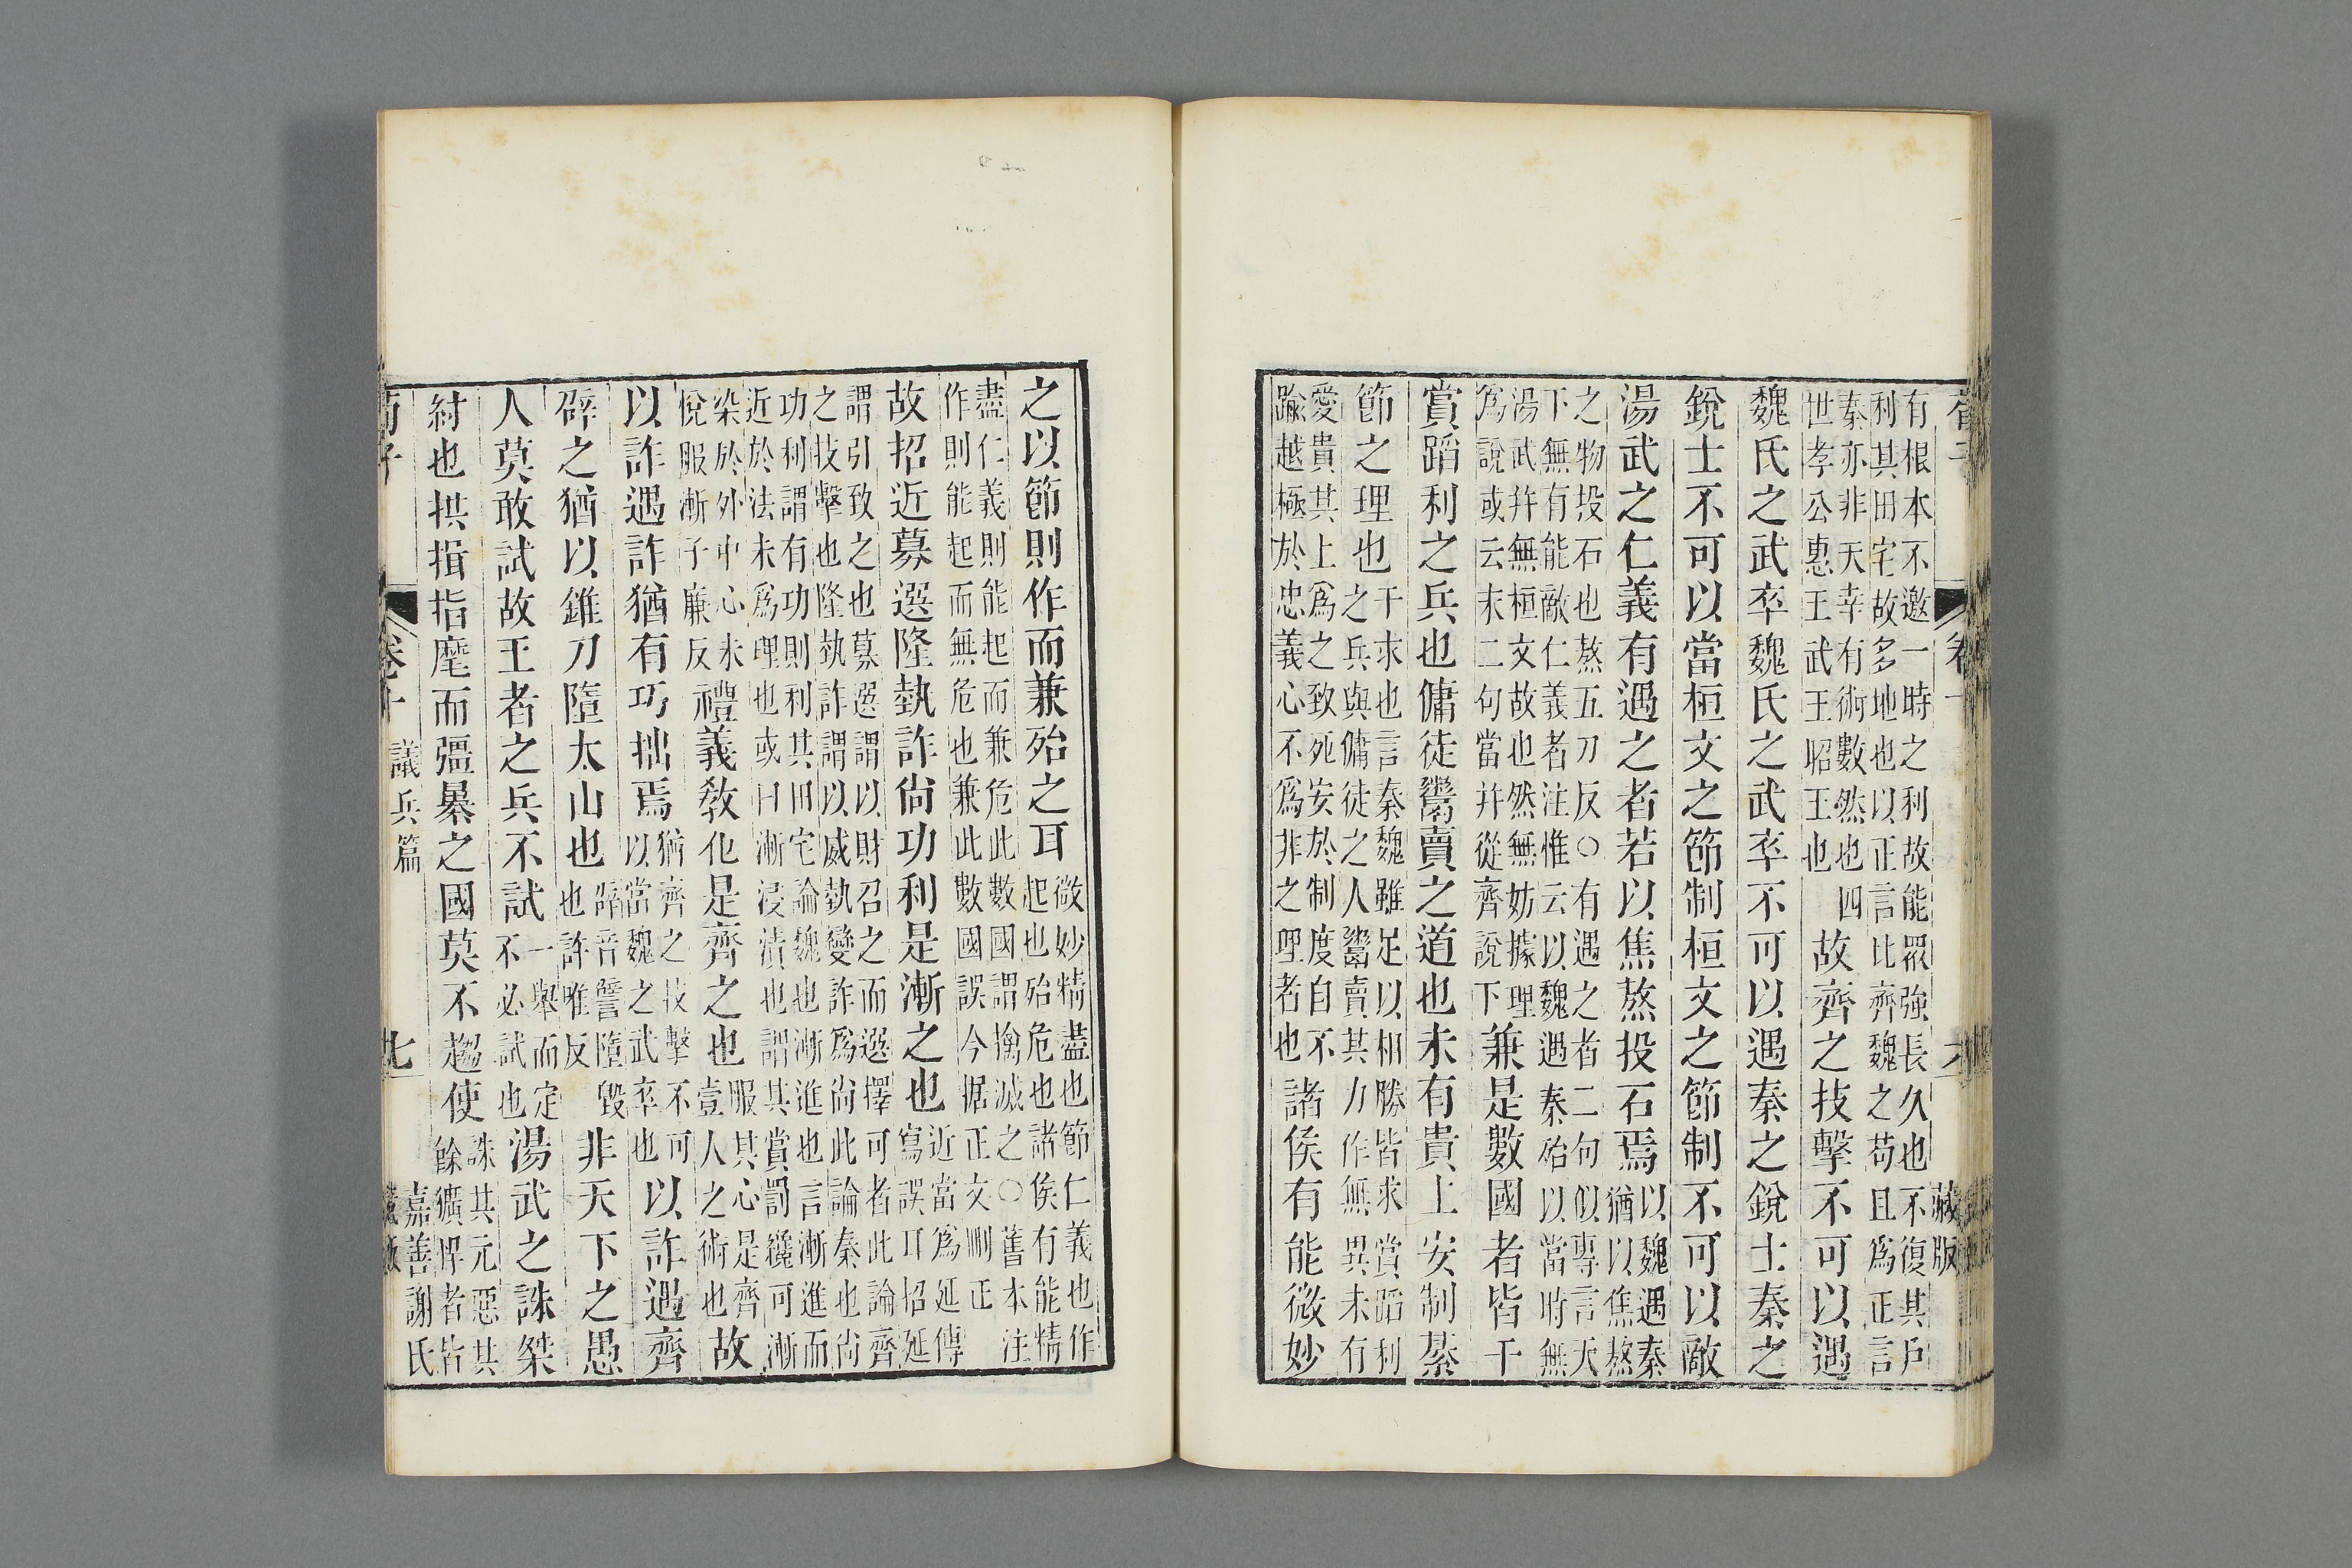 荀子
卷十
藏版
有根本不邀一時之利故能衆強長久也不復其戶
利其田宅故多地也以正言比齊魏之苟且爲正言
秦亦非天幸有術數然也四
世孝公惠王武王昭王也
故齊之技擊不可以遇
魏氏之武卒魏氏之武卒不可以遇秦之銳士秦之
銳士不可以當桓文之節制桓文之節制不可以敵
湯武之仁義有遇之者若以焦熬投石焉
以魏遇秦
猶以焦熬
之物投石也熬五刀反○有遇之者二句似專言天
下無有能敵仁義者注惟云以魏遇秦殆以當時無
湯武幷無桓文故也然無妨據理
爲說或云末二句當幷從齊說下
兼是數國者皆干
賞蹈利之兵也傭徒鬻賣之道也未有貴上安制綦
節之理也
干求也言秦魏雖足以相勝皆求賞蹈利
之兵與傭徒之人鬻賣其力作無異未有
愛貴其上爲之致死安於制度自不
踰越極於忠義心不爲非之理者也
諸侯有能微妙
之以節則作而兼殆之耳
微妙精盡也節仁義也作
起也殆危也諸侯有能精
盡仁義則能起而兼危此數國謂擒滅之○舊本注
作則能起而無危也兼此數國誤今据正文刪正
故招近募選隆埶詐尚功利是漸之也
近當爲延傳
寫誤耳招延
謂引致之也募選謂以財召之而選擇可者此論齊
之技擊也隆埶詐謂以威埶變詐爲尚此論秦也尚
功利謂有功則利其田宅論魏也漸進也言漸進而
近於法未爲理也或曰漸浸漬也謂其賞罰纔可漸
染於外中心未
悅服漸子廉反
禮義敎化是齊之也
服其心是齊
壹人之術也
故
以詐遇詐猶有巧拙焉
猶齊之技擊不可
以當魏之武卒也
以詐遇齊
辟之猶以錐刀墮太山也
辟音譬墮毀
也許唯反
非天下之愚
人莫敢試故王者之兵不試
一舉而定
不必試也
湯武之誅桀
紂也拱揖指麾而彊暴之國莫不趨使
誅其元惡其
餘獷悍者皆
荀子
卷十
議兵篇
七
嘉善謝氏
藏版